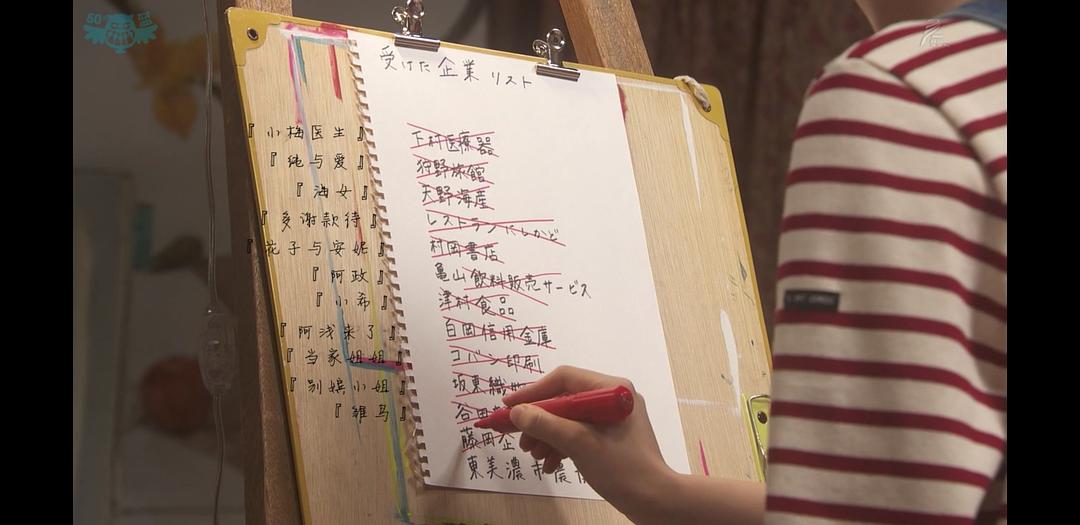 受けた企業リスト
『小梅医生』
『纯与爱』
『海女』
『多谢款待』
『花子与安妮』
『阿政』
『小希』
『阿浅来了』
『当家姐姐』
『别嫔小姐』
『雏鸟』
下村医療器
狩野旅館
天野海産
レストランにしかど
村岡書店
亀山飲料販売サービス
津村食品
白岡信用金庫
コパン印刷
坂東織
谷田
藤岡企
東美濃市農